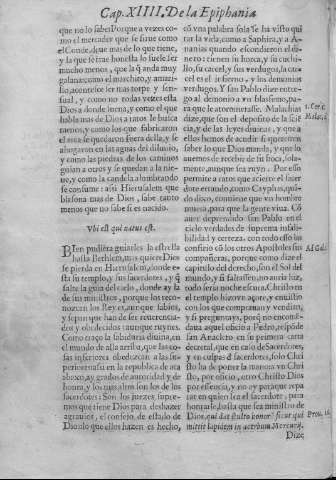 Cap. XIIII. De la Epiphania
que no lo sabe? Porque a vezes co-
mo el mercader que se finge como
el Conde, que mas de lo que tiene,
y la que se trae honesta lo suele ser
mucho menos, que la q̃ anda muy
galana: como el marchito, y amari-
llo, acontece ser mas torpe y sen-
sual, y como no todas vezes esta
Dios a donde mora, y como el que
habla mas de Dios a ratos le busca
menos, y como los que fabricaron
el arca se quedaron fuera della, y se
ahogaron en las aguas del diluuio,
y como las piedras de los caminos
guian a otros y se quedan a la no-
che, y como la candela alumbrando
se consume: assi Hierusalem que
blasona mas de Dios, sabe tanto
menos que no sabe si es nacido.
Vbi est qui natus est.
BIen pudiera guiarles la estrella
hasta Bethlem, mas quiere Dios
se pierda en Hierusalem, donde e-
sta su templo, y sus sacerdotes, y q̃
falte la guia del cielo, donde ay la
de sus ministros, porque los reco-
nozcan los Reyes, aunque sabios,
y sepan que han de ser reuerencia-
dos y obedecidos aunque ruynes.
Como traço la sabiduria diuina, en
el mundo de alla arriba, que las co-
sas inferiores obedezcan a las su-
periores: assi en la republica de aca
abaxo, ay grados de autoridad y de
honra, y los mas altos son los de los
sacerdotes: Son los juezes supre-
mos que tiene Dios para deshazer
agrauios, el consejo de estado de
Dios: lo que ellos hazen es hecho,
cõ vna palabra sola se ha visto qui-
tar la vida, como a Saphira, y a A-
nanias quando escondieron el di-
nero: tienen su horca, y su cuchi-
llo, su carcel, y sus verdugos, la car-
cel es el infierno, y los demonios
verdugos. Y san Pablo dize entre-
go al demonio a vn blasfemo, pa-
ra que le atormentasse. Malachias
dize, que son el deposito de la scie̅-
cia, y de las leyes diuinas, y que a
ellos hemos de acudir si queremos
saber lo que Dios manda, y que lo
auemos de recebir de su boca, sola-
mente, aunque sea ruyn. Por esso
permite a ratos que acierte el sacer
dote errando, como Cayphas, quã-
do dixo, conuiene que vn hombre
muera, para que la gente viua. Cõ
auer deprendido san Pablo en el
cielo verdades de suprema infali-
bilidad y certeza, con todo esso las
confirio cõ los otros Apostoles sus
compañeros, porque como dize el
capitulo del derecho, sin el Sol del
mundo, y si faltasse, no auria luz,
todo seria noche escura. Christo en
el templo hizo vn açote, y enuistio
con los que comprauan y vendian,
y si preguntays, porq̃ no encomẽ-
daua aquel oficio a Pedro, respõde
san Anacleto en su primera carta
decretal, que en caso de Sacerdotes,
y en culpas d̃ sacerdotes, solo Chri
sto ha de poner la mano: a vn Chri
sto, por oficio, otro Christo Dios
por essencia, y no ay paraque repa
rar en quien sea el sacerdote, para
honrarle, basta que sea ministro de
Dios, qui dat stulto honorẽ sicut qui
mittit lapidem in aceruum Mercurij.
Dize
1. Cor. 5.
Malac. 2.
Prou. 26.